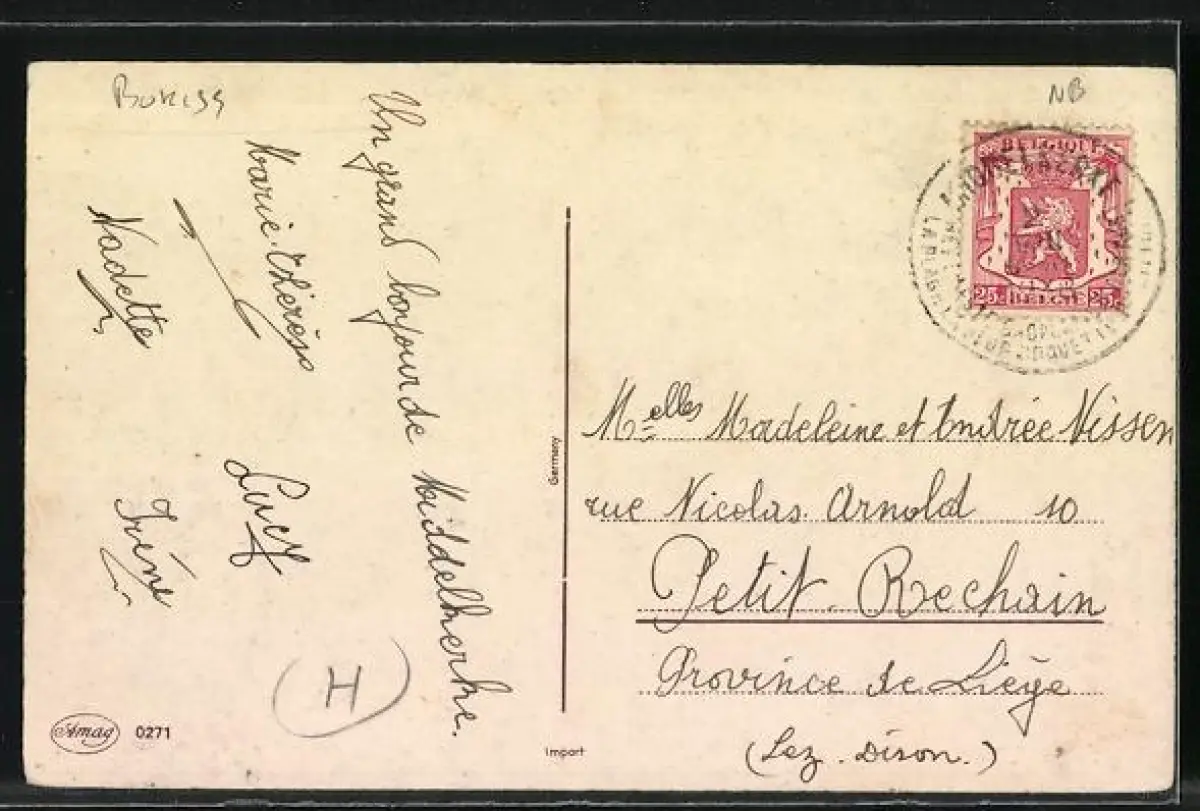 NB
Un grand bonjour de Middelkerke.
Marie-Thérèse
Nadette
Lucy
Irène
I
Amag 0271
Germany
Import
BELGIQUE
25c BELGIE 25c
Melles Madeleine et Andrée Nissen
rue Nicolas Arnold 10
Petit-Rechain
Province de Liège
(Lez-Dison.)